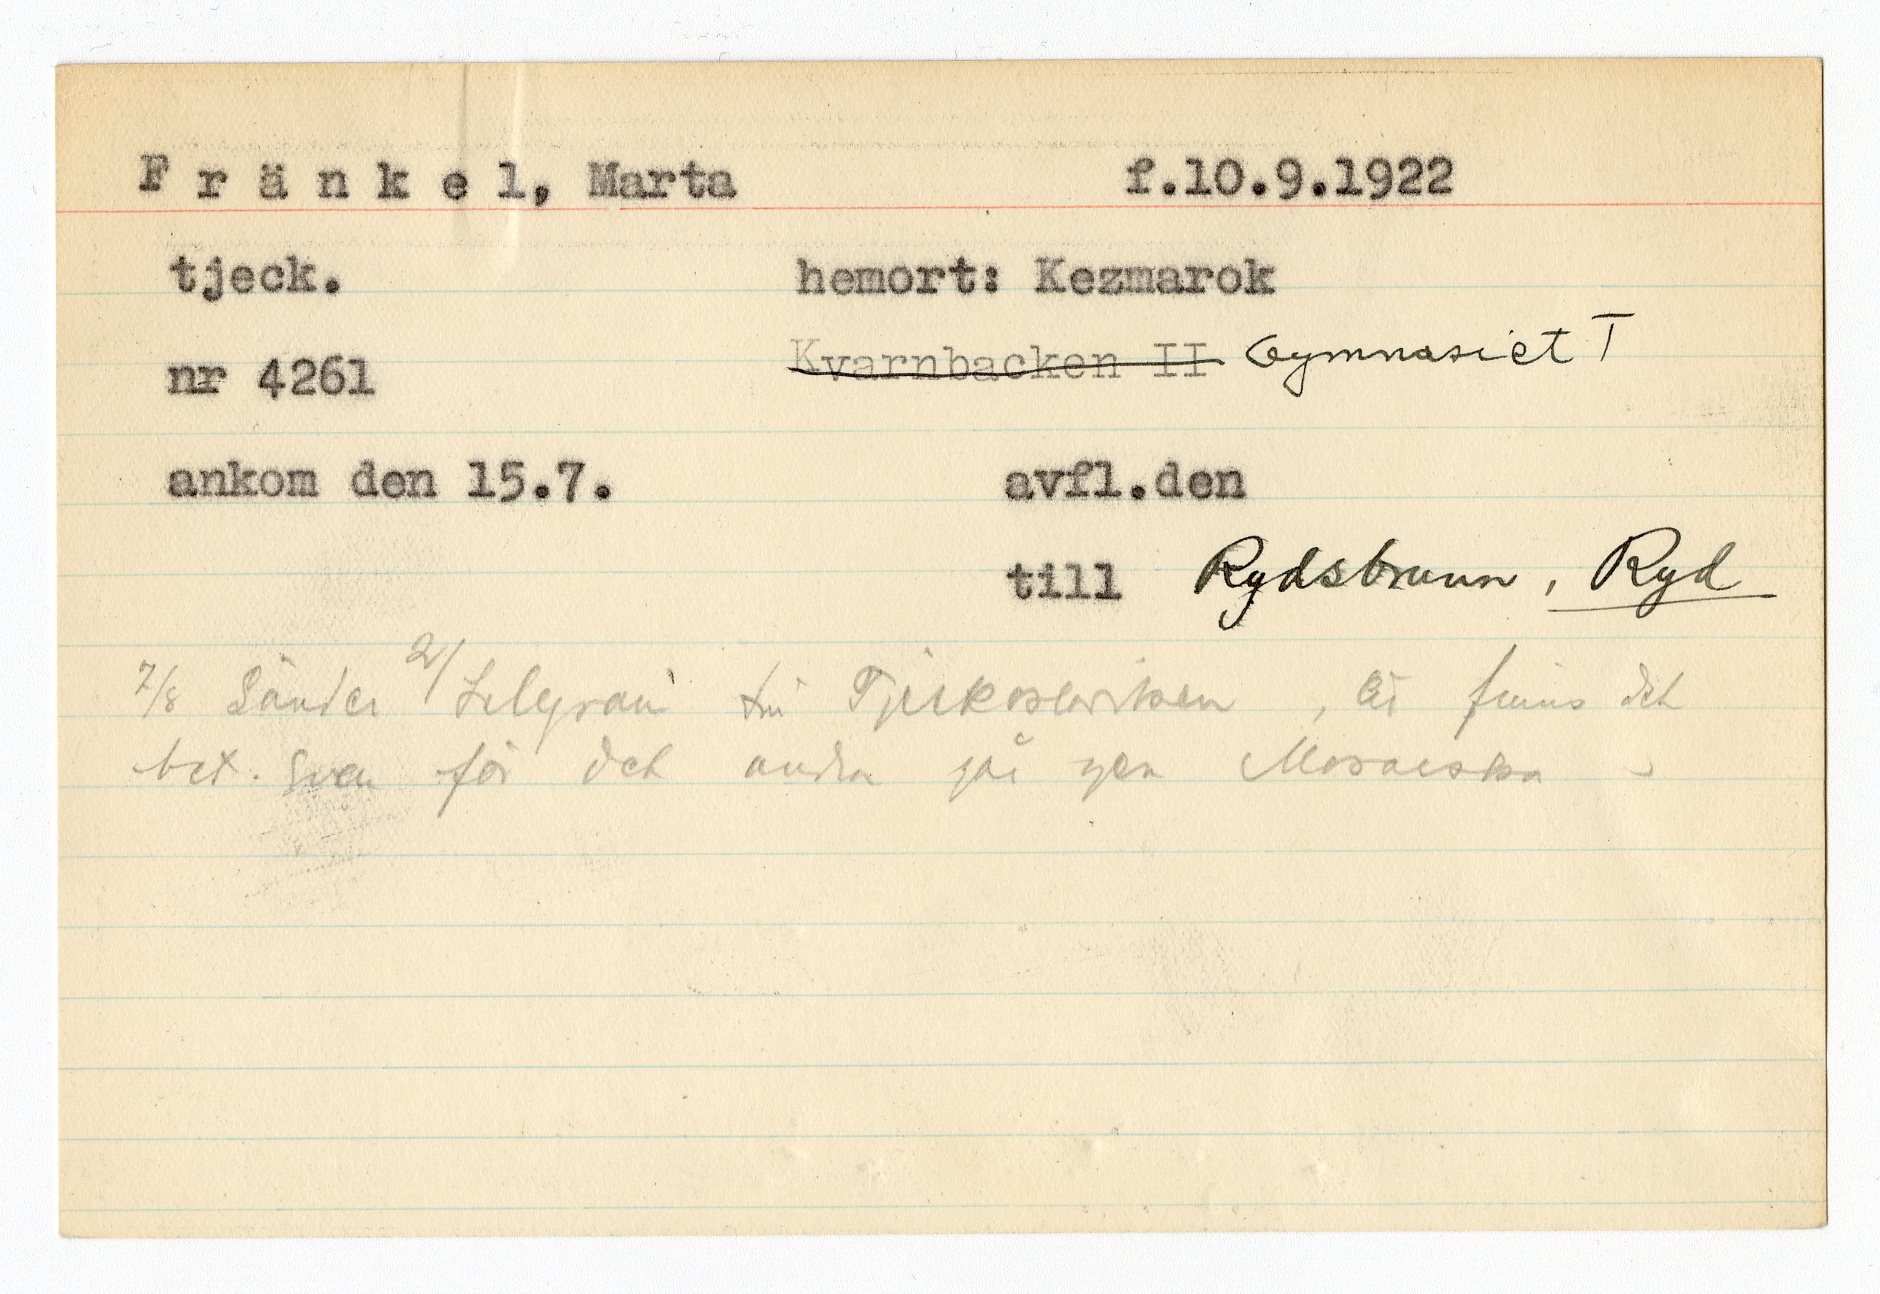 Fränkel, Marta f.10.9.1922
tjeck. hemort: Kezmarok
nr 4261 Kvarnbacken II Gymnasiet I
ankom den 15.7. avfl.den
till Rydsbrunn, Ryd
7/8 Sänder 2/ telegram till Tjeckoslovakien, finns det
bet. för det andra Mosaiska